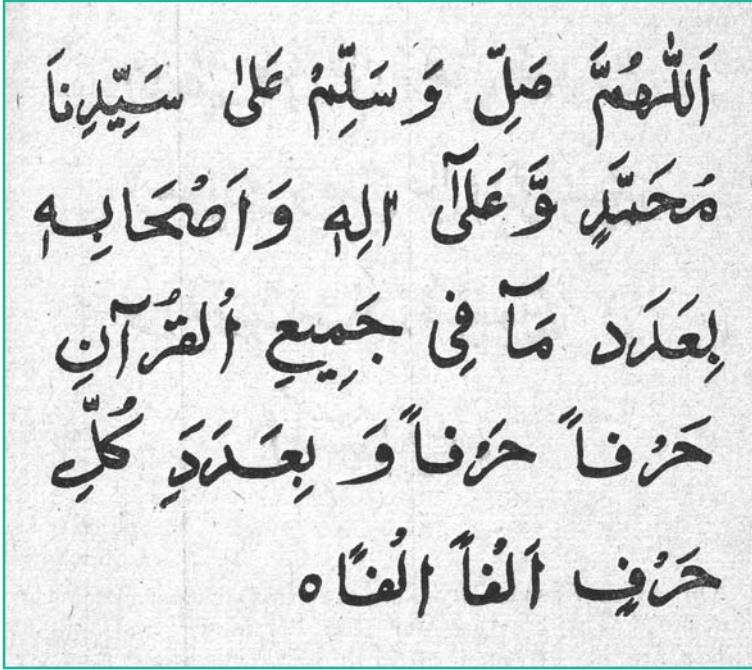 اَللّٰهُمَّ صَلِّ وَ سَلِّمْ عَلٰى سَيِّدِنَا
مُحَمَّدٍ وَّ عَلٰٓى اٰلِهٖ وَ اَصْحَابِهٖ
بِعَدَدِ مَآ فِى جَمِيعِ الْقُرْآنِ
حَرْفاً حَرْفاً وَ بِعَدَدِ كُلِّ
حَرْفٍ اَلْفاً اَلْفًا ه